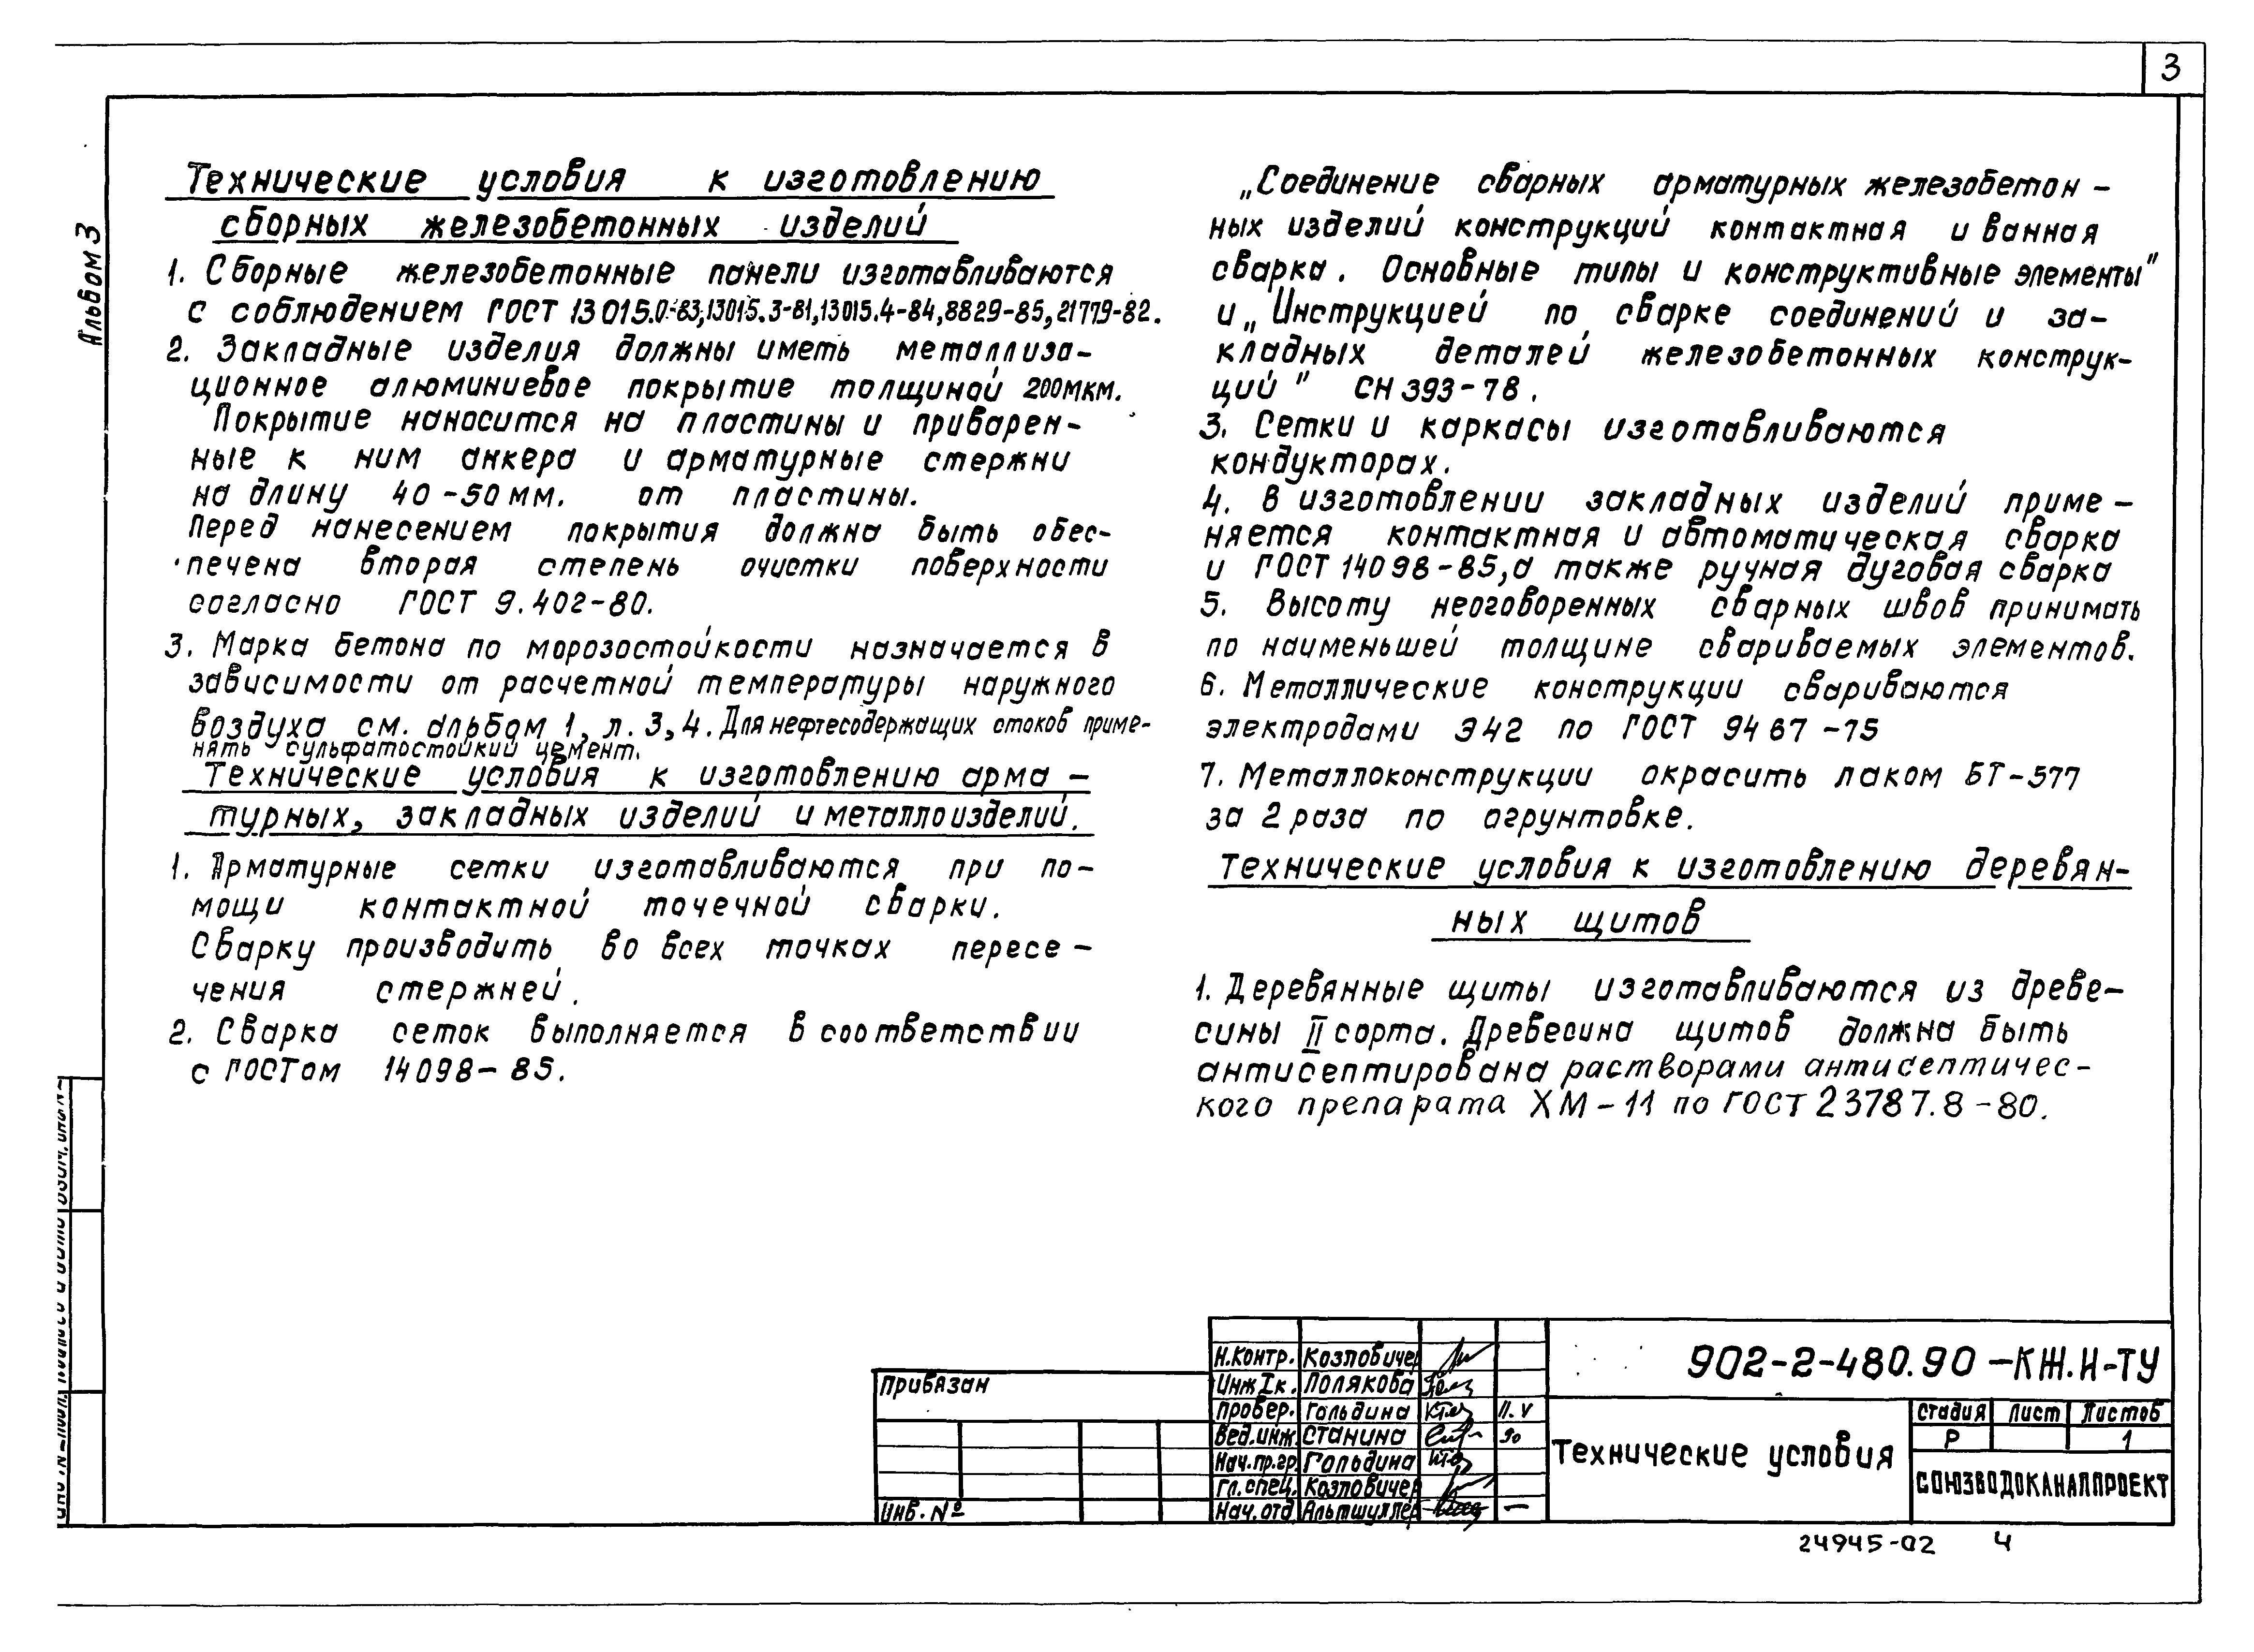 3
Альбом 3
Технические условия к изготовлению
сборных железобетонных изделий
1. Сборные железобетонные панели изготавливаются
с соблюдением ГОСТ 13015.0-83,13015.3-81,13015.4-84,8829-85,21779-82.
2. Закладные изделия должны иметь металлиза-
ционное алюминиевое покрытие толщиной 200мкм.
Покрытие наносится на пластины и приварен-
ные к ним анкера и арматурные стержни
на длину 40-50мм. от пластины.
Перед нанесением покрытия должна быть обес-
печена вторая степень очистки поверхности
согласно ГОСТ 9.402-80.
3. Марка бетона по морозостойкости назначается в
зависимости от расчетной температуры наружного
воздуха см. альбом 1, л.3,4. Для нефтесодержащих стоков приме-
нять сульфатостойкий цемент.
Технические условия к изготовлению арма-
турных, закладных изделий и металлоизделий.
1. Арматурные сетки изготавливаются при по-
мощи контактной точечной сварки.
Сварку производить во всех точках пересе-
чения стержней.
2. Сварка сеток выполняется в соответствии
с ГОСТом 14098-85.
„Соединение сварных арматурных железобетон-
ных изделий конструкций контактная и ванная
сварка. Основные типы и конструктивные элементы"
и „Инструкцией по сварке соединений и за-
кладных деталей железобетонных конструк-
ций" СН 393-78.
3. Сетки и каркасы изготавливаются
кондукторах.
4. В изготовлении закладных изделий приме-
няется контактная и автоматическая сварка
и ГОСТ 14098-85, а также ручная дуговая сварка
5. Высоту неоговоренных сварных швов принимать
по наименьшей толщине свариваемых элементов.
6. Металлические конструкции свариваются
электродами Э42 по ГОСТ 9467-75
7. Металлоконструкции окрасить лаком БТ-577
за 2 раза по огрунтовке.
Технические условия к изготовлению деревян-
ных щитов
1. Деревянные щиты изготавливаются из древе-
сины II сорта. Древесина щитов должна быть
антисептирована растворами антисептичес-
кого препарата ХМ-11 по ГОСТ 23787.8-80.
Привязан
Инв. №
Н.контр. Козловичер
Инж Iк. Полякова
Провер. Гольдина 11.V
Вед.инж. Станина 90
Нач.пр.гр. Гольдина
Гл.спец. Козловичер
Нач.отд Альтшуллер
902-2-480.90-КЖ.И-ТУ
Технические условия
Стадия Лист Листов
Р 1
СОЮЗВОДОКАНАЛПРОЕКТ
24945-02 4